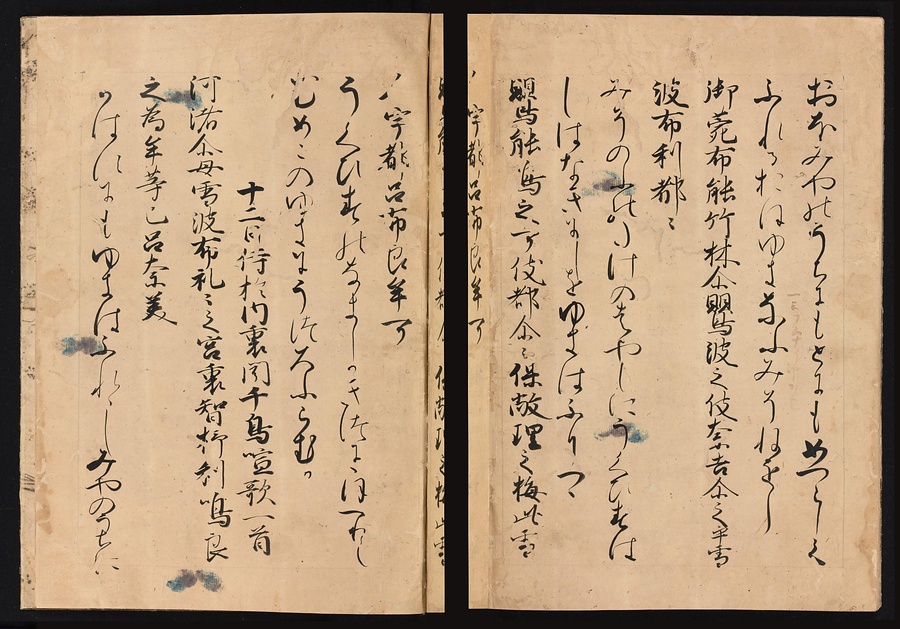 おほみやのうちにもとにもめつらしく
ふれるおほゆきなふみそねをし
御苑布能竹林尓鸎波之伎奈吉尓之乎雪
波布利都〻
みそのふのたけのはやしにうくひすは
しはなきにしをゆきはふりつゝ
鸎能鳴之可伎都尓〻保敝理之梅此雪
尓宇都呂布良牟可
うくひすのなきしかきつにゝほへりし
むめこのゆきにうつろふらむか
十二日侍於内裏聞千鳥喧歌一首
河渚尓母雪波布礼〻之宮裏智杼利鳴良
之為牟等己呂奈美
かはすにもゆきはふれゝしみやのうちに